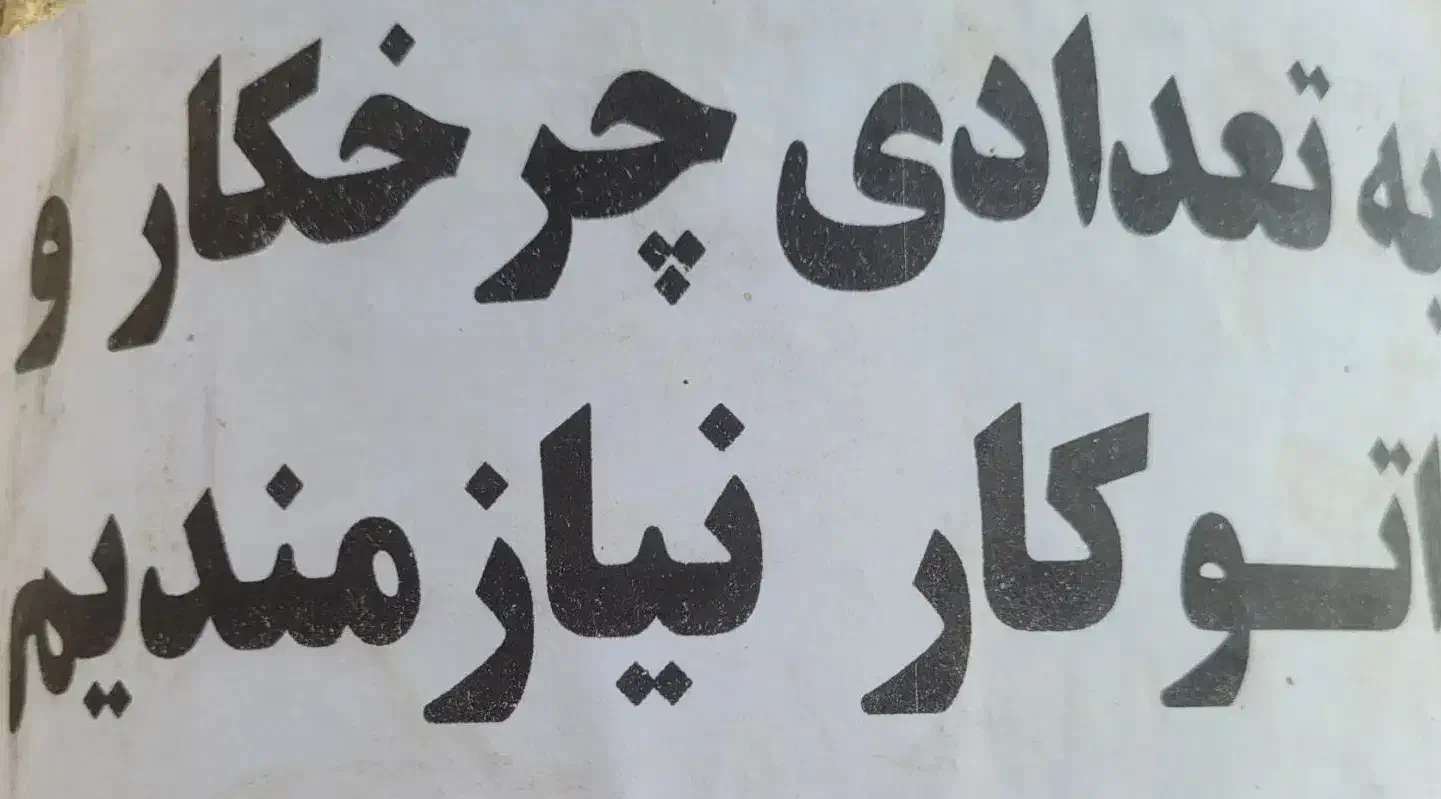 به تعدادی چرخکار و
اتوکار نیازمندیم